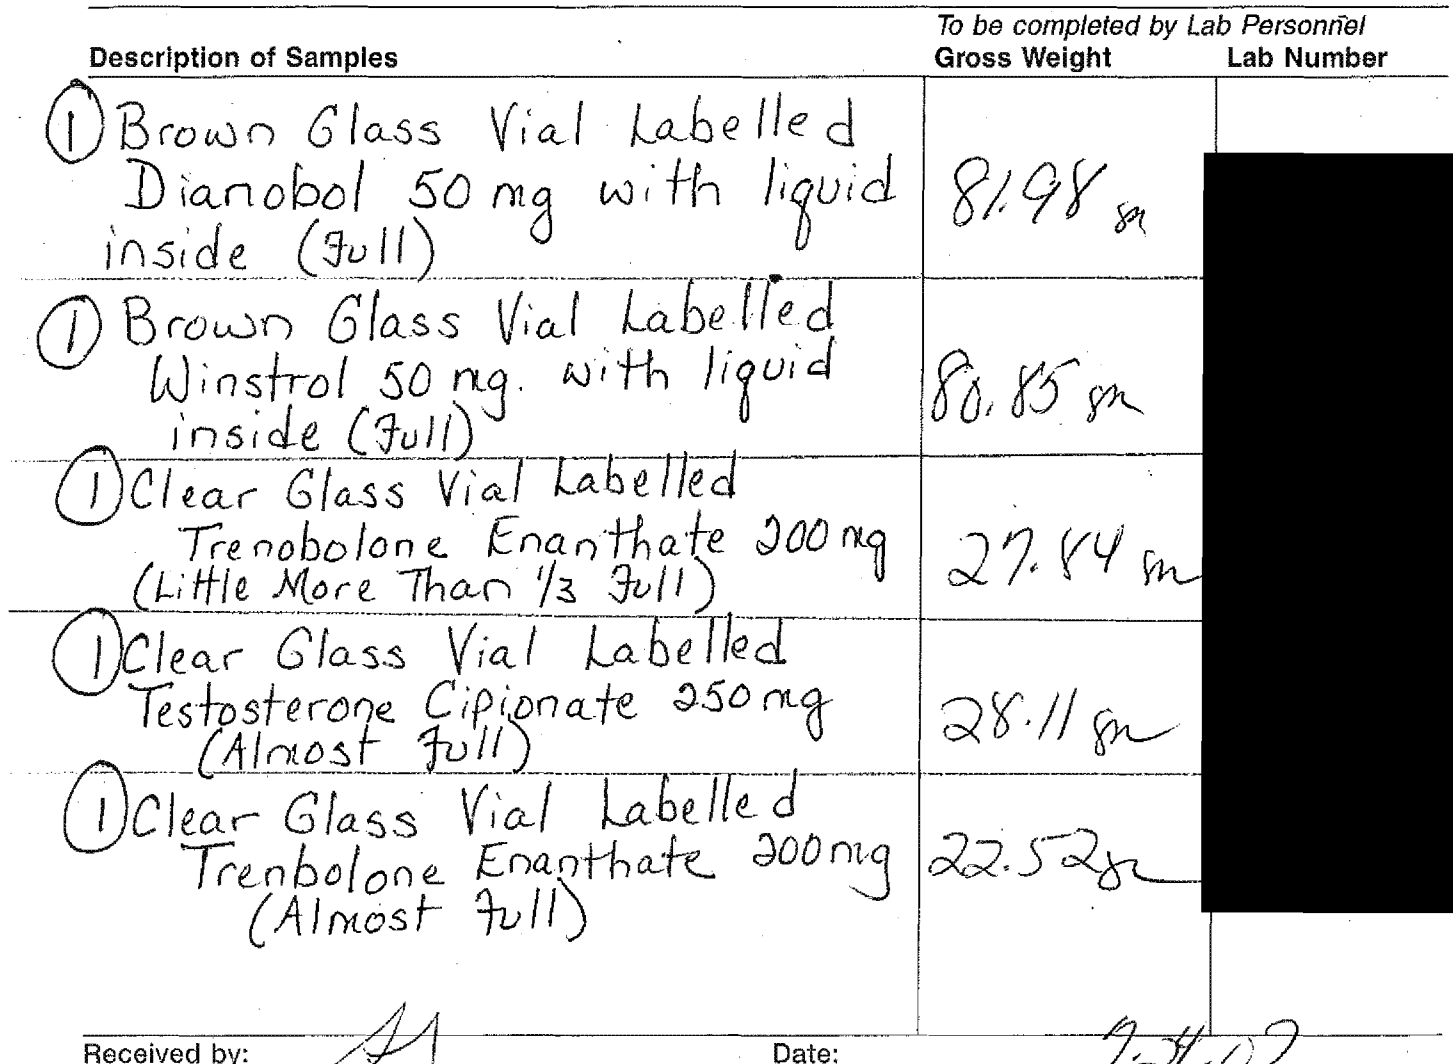 To be completed by Lab Personnel
Description of Samples Gross Weight Lab Number
① Brown Glass Vial Labelled
Dianobol 50 mg with liquid 81.98 gm
inside (Full)
① Brown Glass Vial Labelled
Winstrol 50 mg. with liquid 80.85 gm
inside (Full)
① Clear Glass Vial Labelled
Trenobolone Enanthate 200 mg 27.84 gm
(Little More Than 1/3 Full)
① Clear Glass Vial Labelled
Testosterone Cipionate 250 mg 28.11 gm
(Almost Full)
① Clear Glass Vial Labelled
Trenbolone Enanthate 200 mg 22.52 gm
(Almost Full)
Received by: Date: